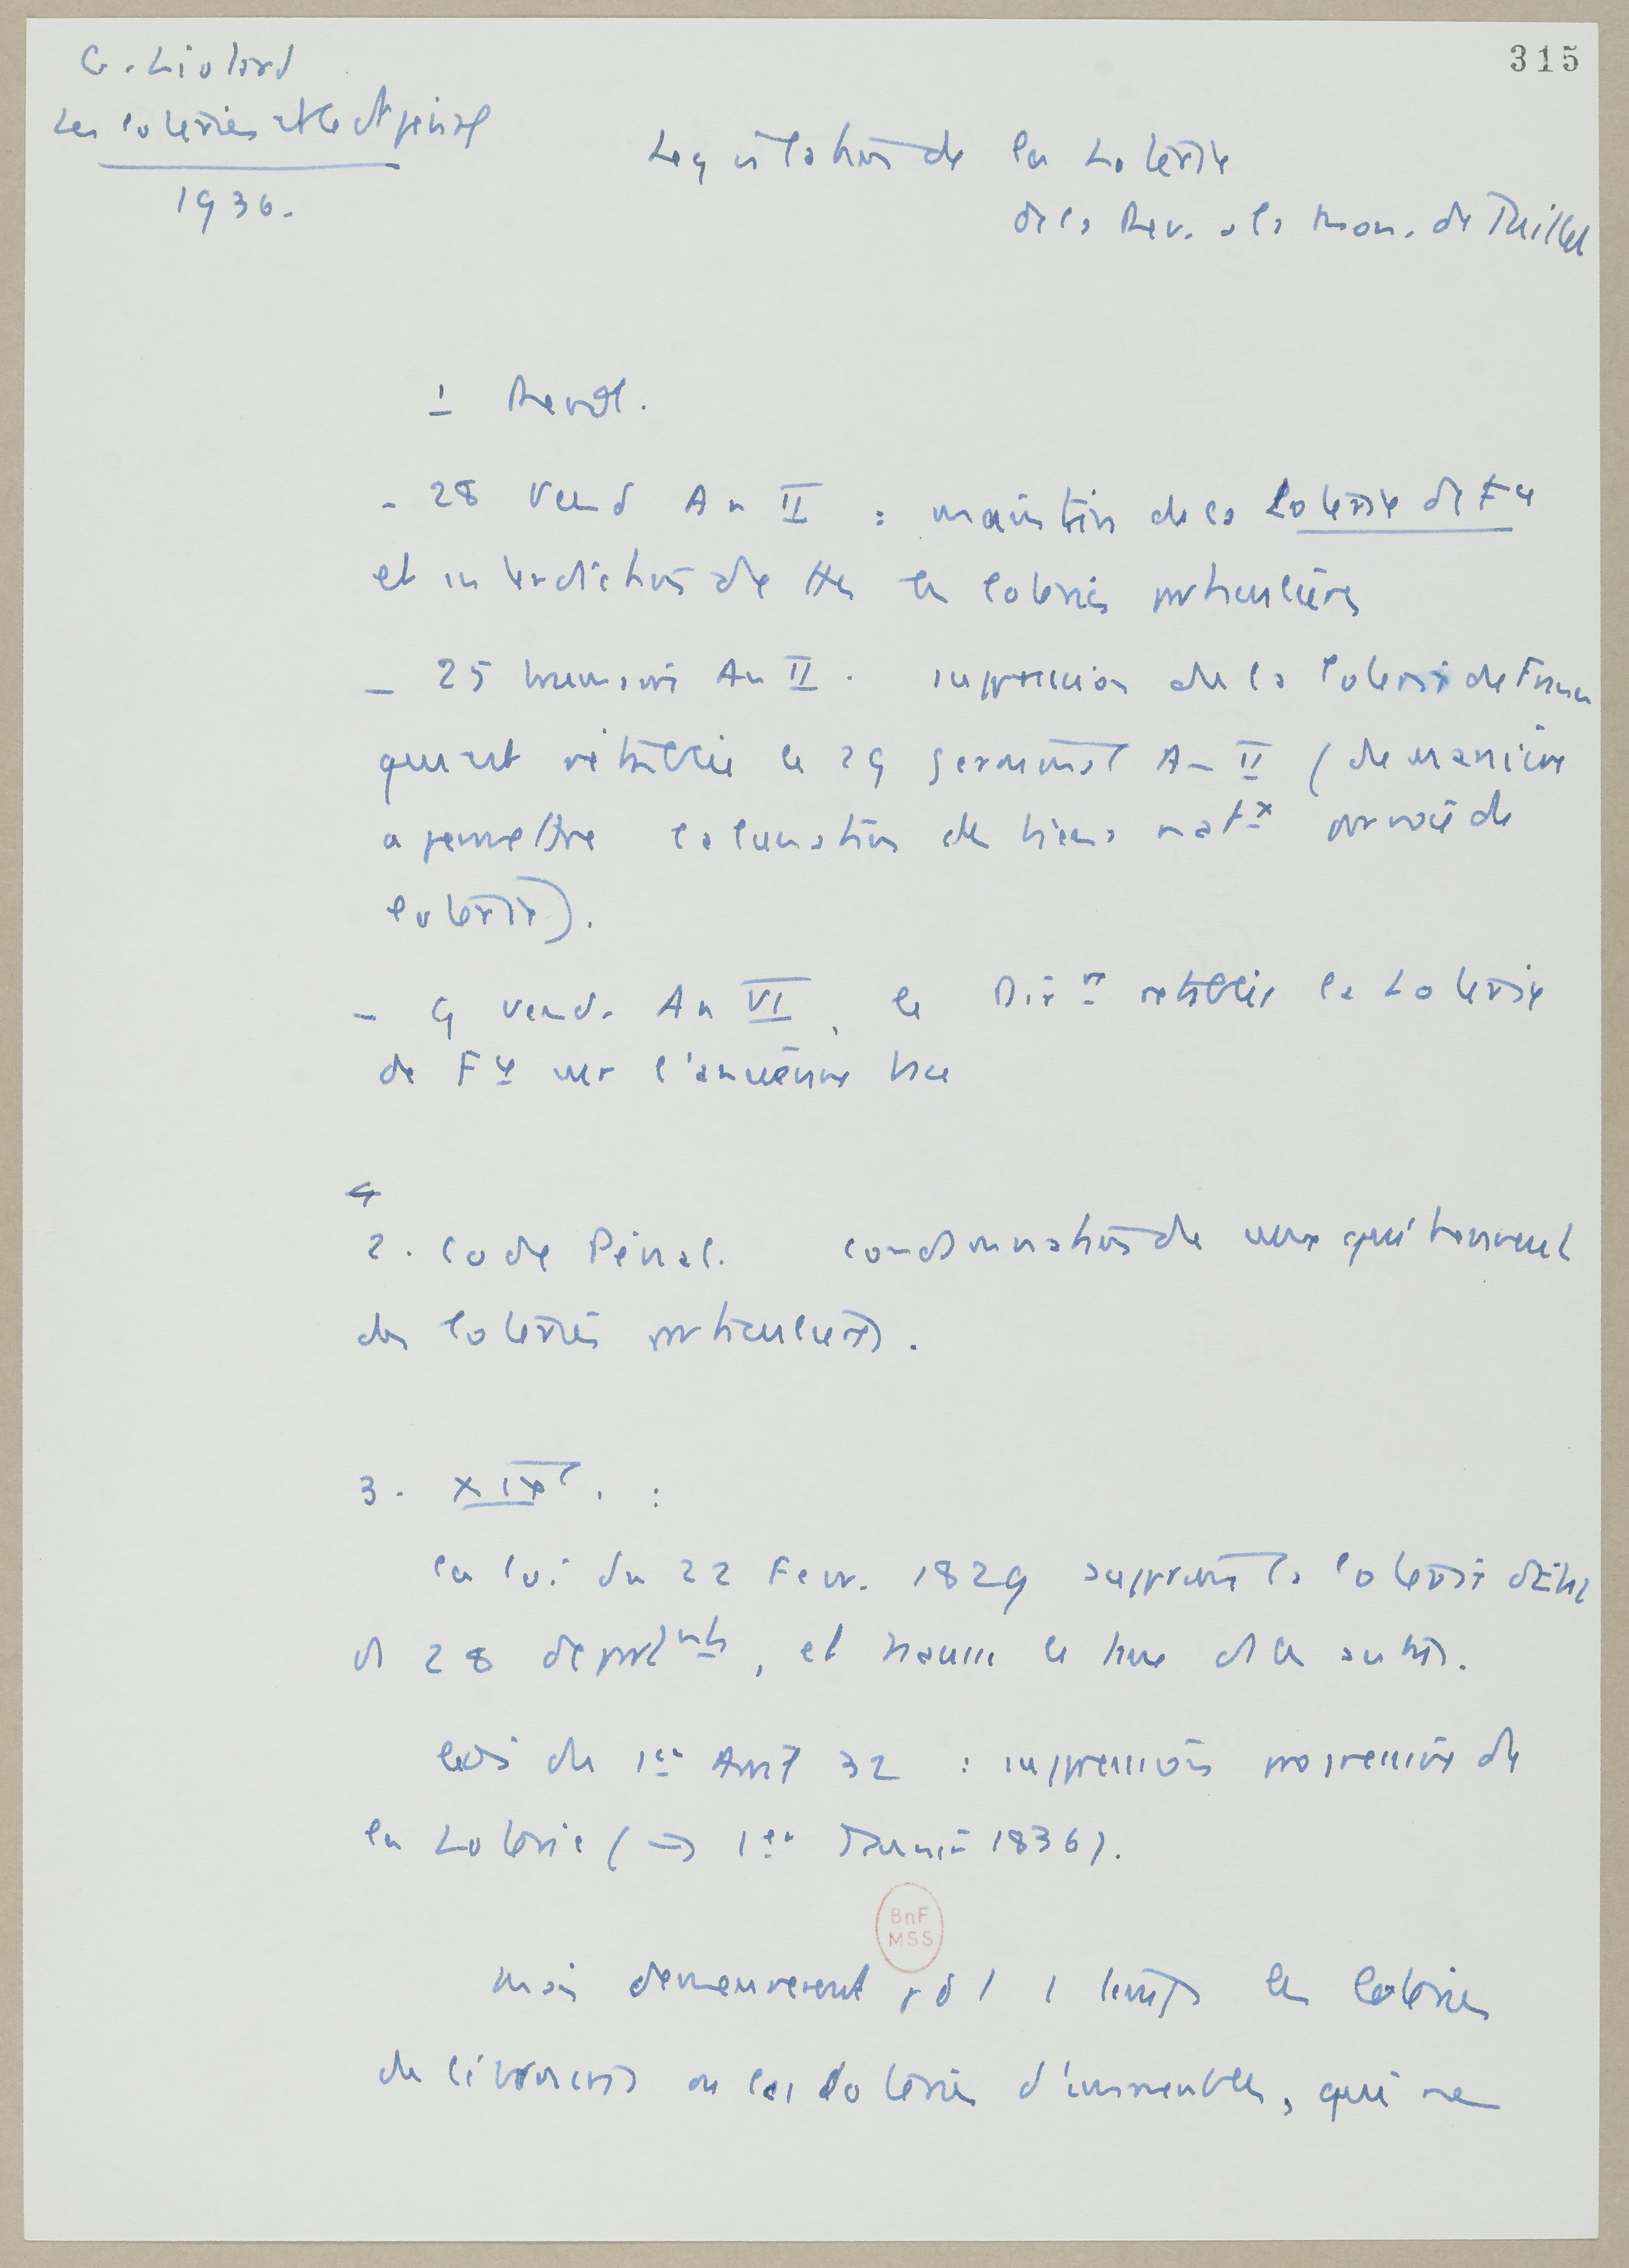 315
G. Liotard
Les loteries et le dt pénal
1936.
Legislation de la Loterie
de la Rev. a la Mon. de Juillet
1 Revol.
- 28 Vend An II : maintien de la Loterie de Fce
et interdiction de ttes les loteries particulières
- 25 brumaire An II . suppression de la loterie de France
qui est rétablie le 29 germinal An II (de manière
a permettre des biens natx par voie de
loterie).
- 9 vend. An VI, le Dirre rétablie la Loterie
de Fce sur l'ancienne base
2. Code Pénal. condamnation de ceux qui tiennent
des loteries particulières.
3. XIX . :
la loi du 22 Fevr. 1829 supprime la loterie dans
28 departmts, et la mise ds les autres.
Loi du 1er Avril 32 : suppression progressive de
la Loterie (→ 1er Janvier 1836).
BnF
MSS
Mais demeurerent pdt 1 temps les loteries
de ou les loteries d'immeubles, qui ne